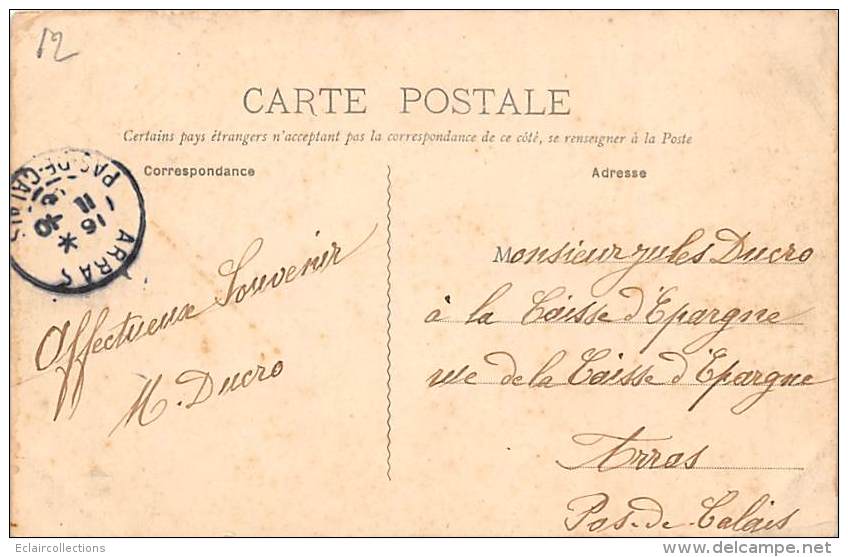 12
CARTE POSTALE
Certains pays étrangers n'acceptant pas la correspondance de ce côté, se renseigner à la Poste
Correspondance
Adresse
ARRAS
PAS-DE-CALAIS
16
11
Affectueux Souvenir
M. Ducro
Monsieur Jules Ducro
à la Caisse d'Epargne
rue de la Caisse d'Epargne
Arras
Pas-de-Calais
Eclaircollections
www.delcampe.net